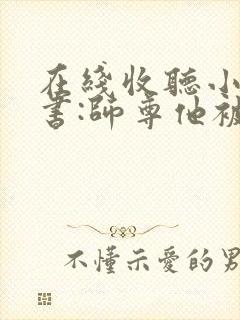 在綫收聽小
書:師尊他被
不懂示愛的男